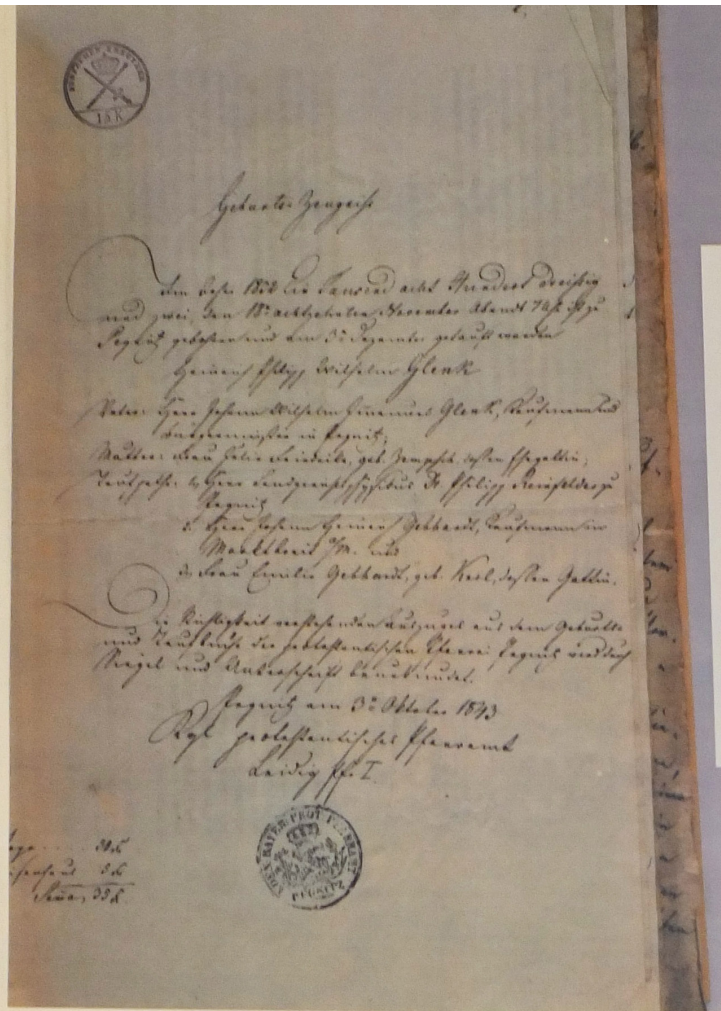 15 K
Geburts-Zeugniß
Im Jahr 1832 Ein Tausend acht Hundert dreißig
und zwei, den 18. achtzehnten November Abends 7 Uhr ist zu
Pegnitz geboren und am 3. Dezember getauft worden
Heinrich Philipp Wilhelm Glenk
Vater: Herr Johann Wilhelm Emanuel Glenk, Kaufmann und
Bürgermeister in Pegnitz;
Mutter: Frau Julie Friederike, geb. dessen Ehegattin;
Taufpathe: Herr Landgerichtsphysikus Dr. Philipp zu
Pegnitz
Herr Johann Heinrich Gebhardt, Kaufmann in
Marktbreit a/M. und
Frau Emilie Gebhardt, geb. Keil, dessen Gattin.
Die Richtigkeit vorstehenden Auszuges aus dem Geburts-
und Taufbuche der protestantischen Pfarrei Pegnitz wird durch
Siegel und Unterschrift beurkundet.
Pegnitz am 3. Oktober 1843
Kgl. protestantisches Pfarramt
Leidig Pf. I.
KOEN. BAYER. PROT. PFARRAMT
PEGNITZ
30 k
5 k
Summa 35 k